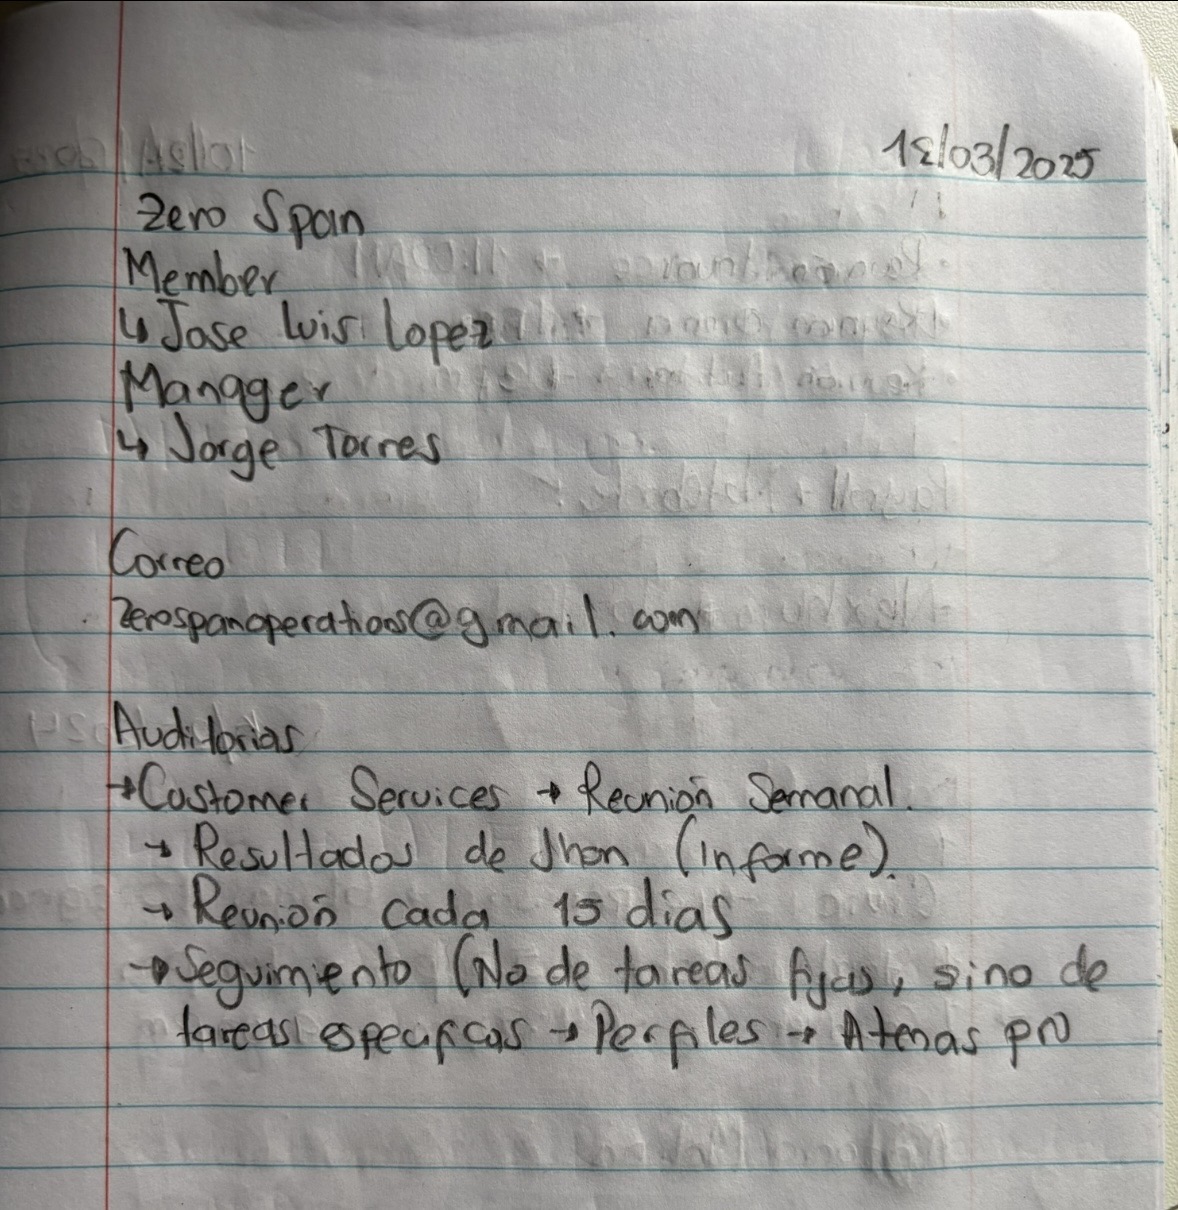 18/03/2025
Zero Span
Member
↳ Jose Luis Lopez
Manager
↳ Jorge Torres
Correo
zerospanoperations@gmail.com
Auditorias
→ Customer Services → Reunión Semanal.
→ Resultados de Jhon (informe).
→ Reunión cada 15 dias
→ Seguimiento (No de tareas fijas, sino de
tareas especificas → Perfiles → Atenas pro